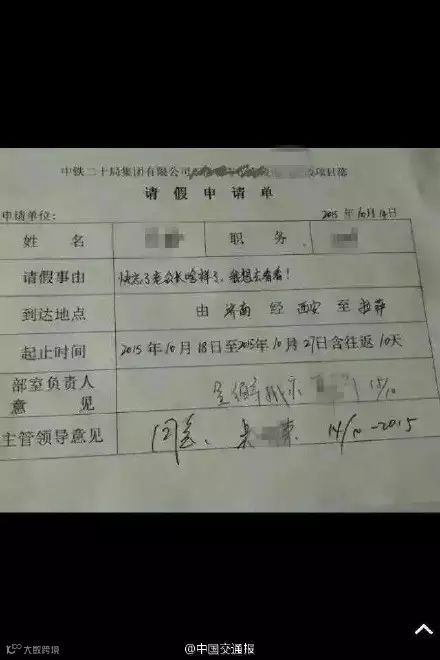 中铁二十局集团有限公司 项目部
请假申请单
申请单位: 2015年10月14日
姓名 职务
请假事由 快忘了老公长啥样了，我想去看看！
到达地点 由 济南 经 西安 至
起止时间 2015年10月18日至2015年10月27日含往返10天
部室负责人
意见 15/10
主管领导意见 同意、 14/10-2015
大数跨境
@中国交通报